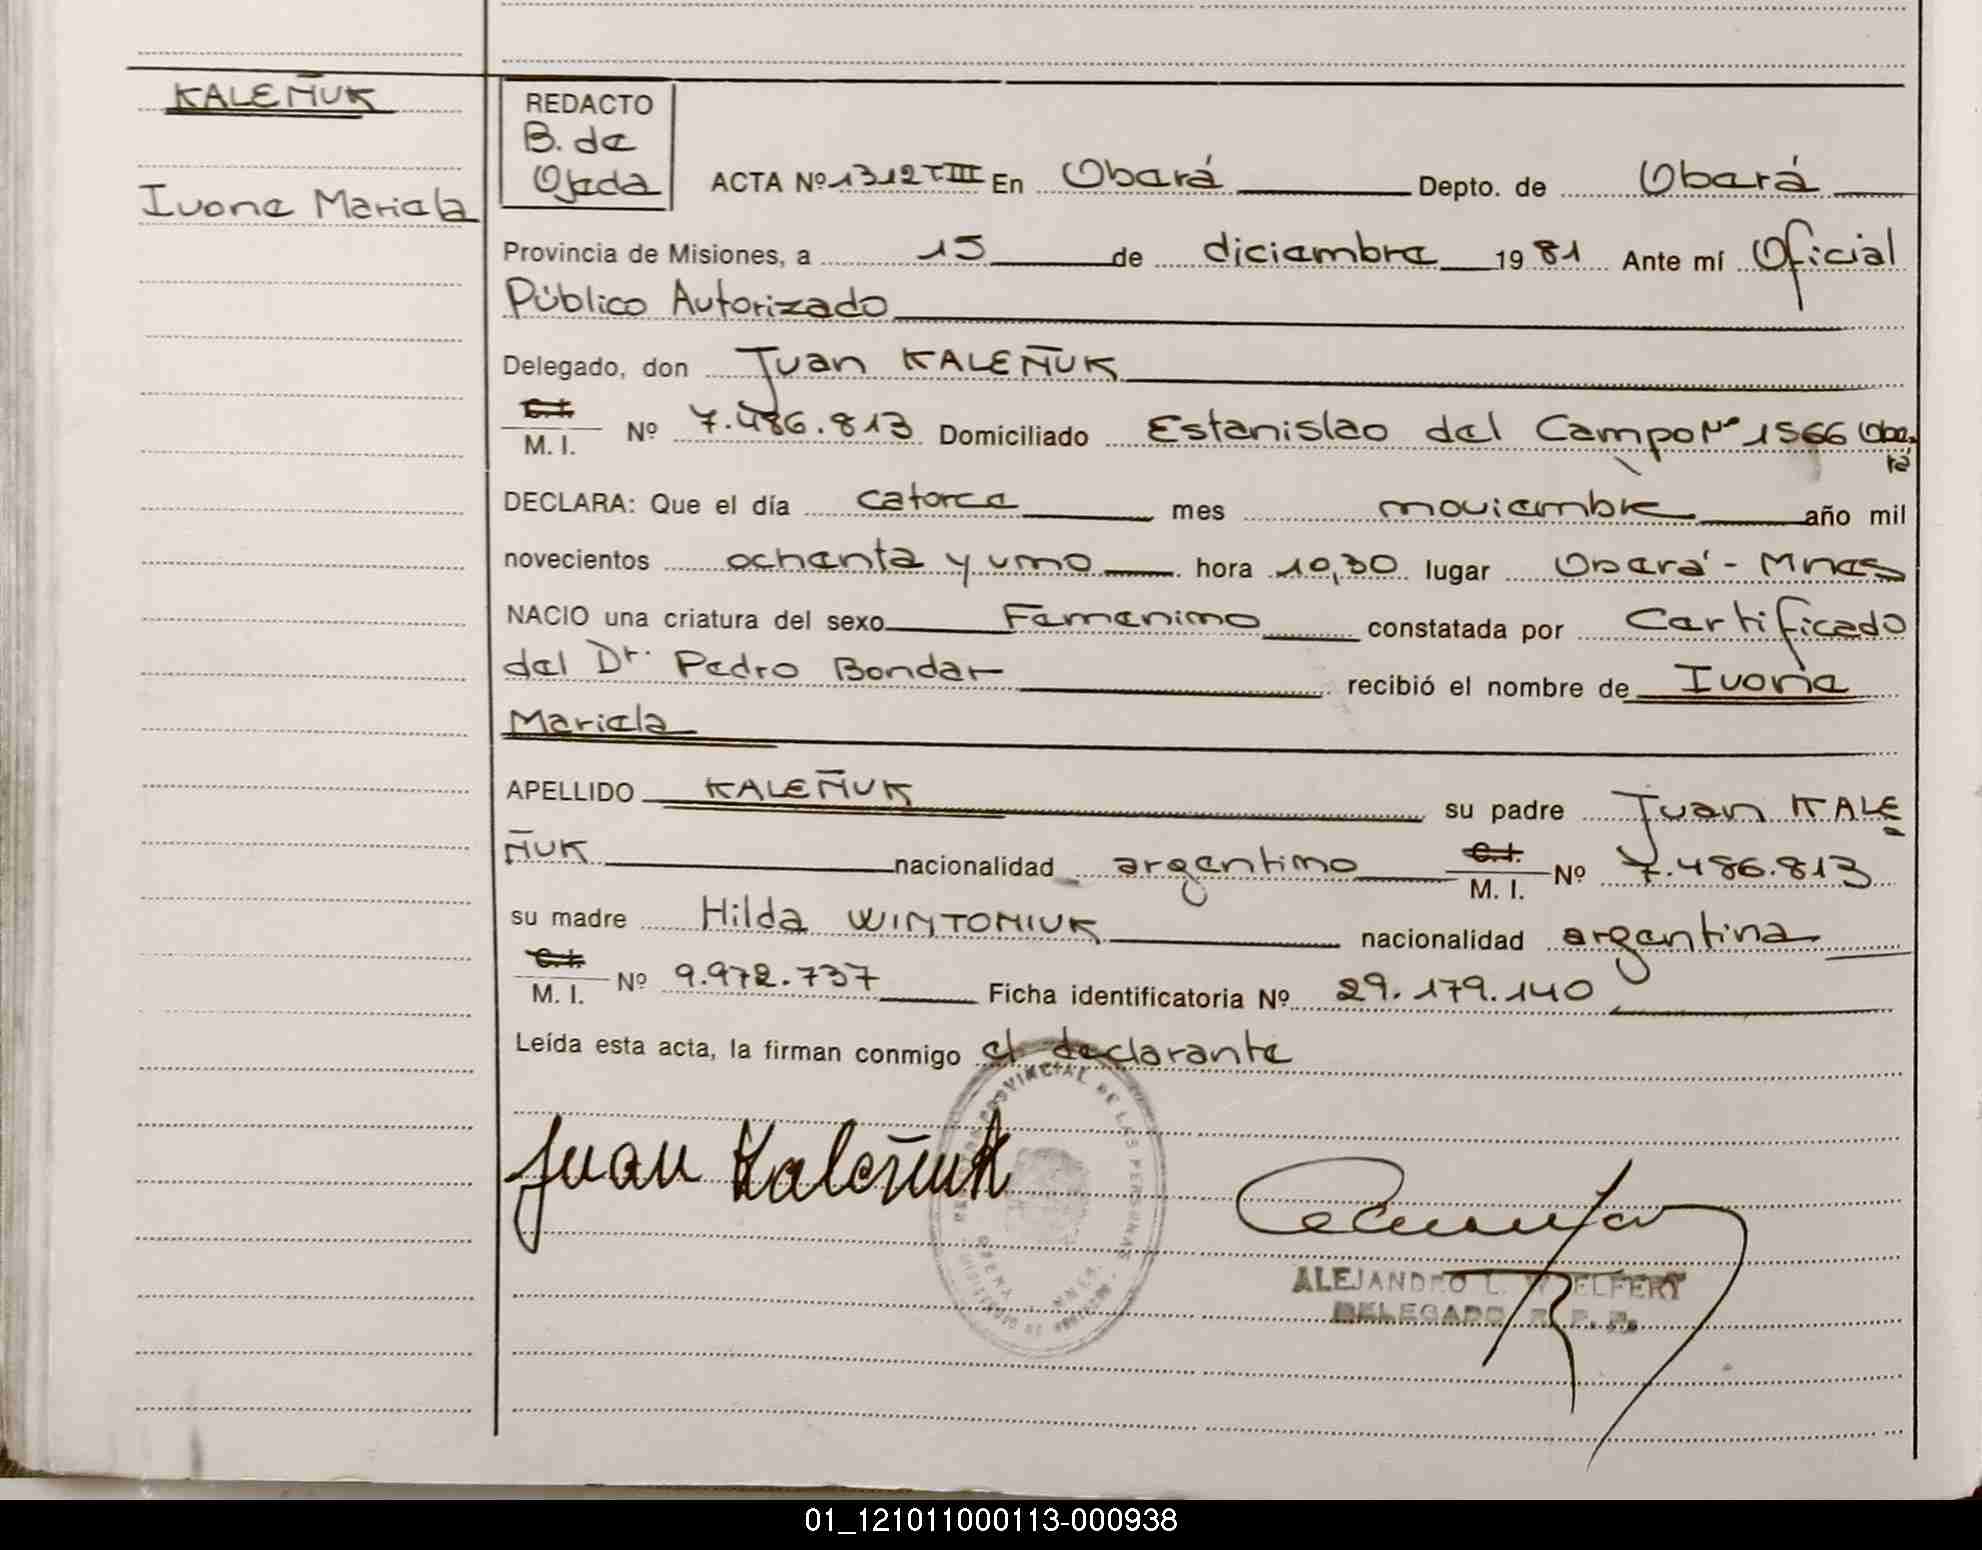 KALEÑUK
Ivone Mariela
REDACTO
B. de
Ojeda
ACTA Nº 1312 TIII En Oberá Depto. de Oberá
Provincia de Misiones, a 15 de diciembre 19 81 Ante mí Oficial
Público Autorizado
Delegado, don Juan KALEÑUK
C.I.
M. I. Nº 7.486.813 Domiciliado Estanislao del Campo Nº 1566 Obe.
rá
DECLARA: Que el día catorce mes noviembre año mil
novecientos ochenta y uno hora 10,30 lugar Oberá - Mnes
NACIO una criatura del sexo Femenino constatada por Certificado
del Dr. Pedro Bondar recibió el nombre de Ivone
Mariela
APELLIDO KALEÑUK su padre Juan KALE
ÑUK nacionalidad argentino C.I. M. I. Nº 7.486.813
su madre Hilda WINTONIUK nacionalidad argentina
C.I.
M. I. Nº 9.972.737 Ficha identificatoria Nº 29.179.140
Leída esta acta, la firman conmigo el declarante
PROVINCIAL DE LAS PERSONAS
Juan Kaleñuk
ALEJANDRO L. WELFERT
DELEGADO R. P. P.
01_121011000113-000938